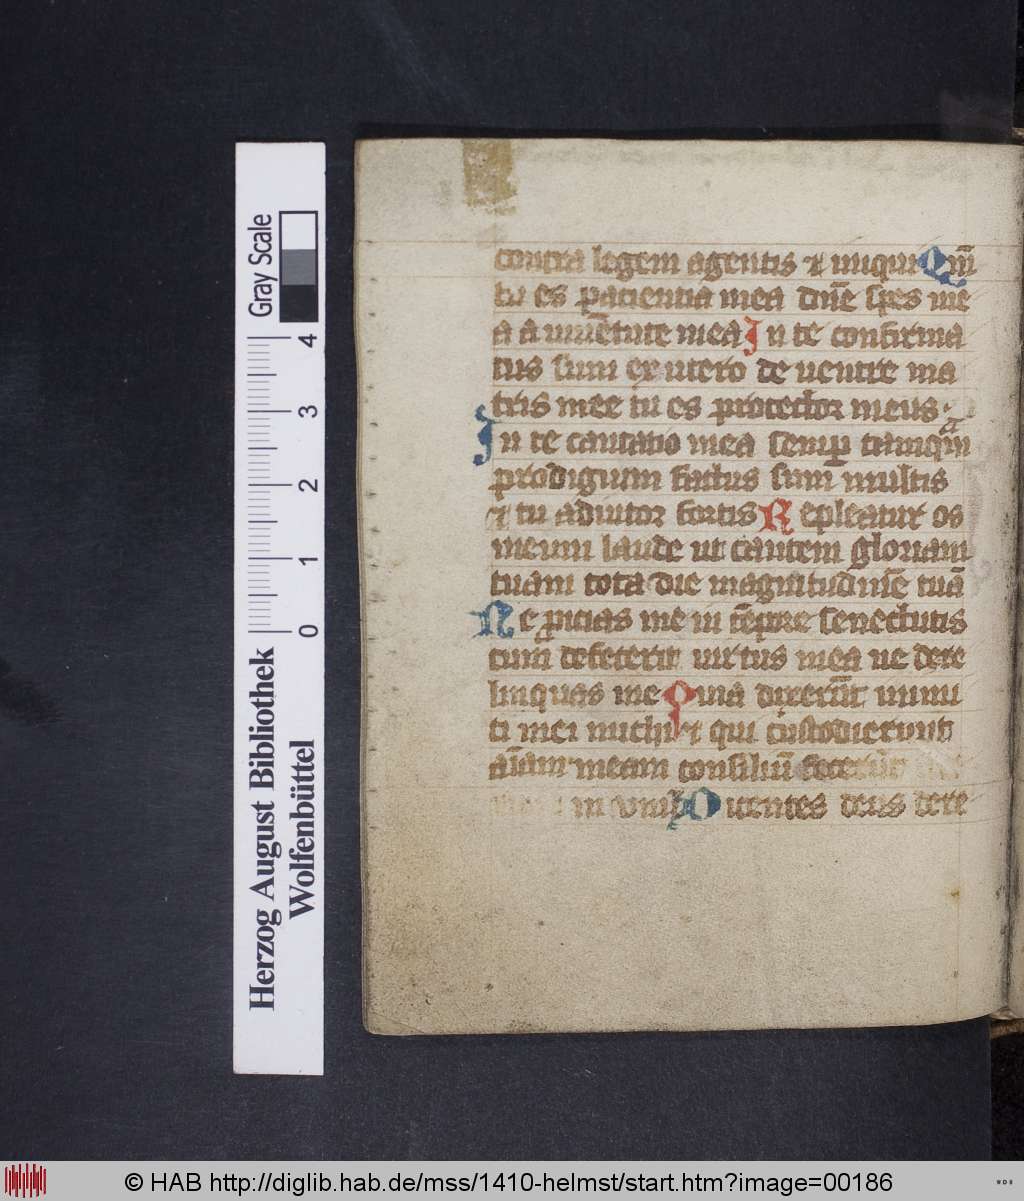 contra legem agentis et iniqui Qm̄
tu es patientia mea dn̄e spes me
a a iuuētute mea In te confirma
tus sum ex utero de uentre ma
tris mee tu es protector meus
In te cantatio mea semꝑ tamqm̄
prodigium factus sum multis
et tu adiutor fortis Repleatur os
meum laude ut cantem gloriam
tuam tota die magnitudinē tuā
Ne ꝓicias me in tēpore senectutis
cum defecerit uirtus mea ne dere
linquas me Quia dixerūt inimi
ci mei michi et qui custodierunt
aīam meam consiliū fecerūt
in unū Dicentes deus dere
Herzog August Bibliothek
Wolfenbüttel
0 1 2 3 4
Gray Scale
© HAB http://diglib.hab.de/mss/1410-helmst/start.htm?image=00186